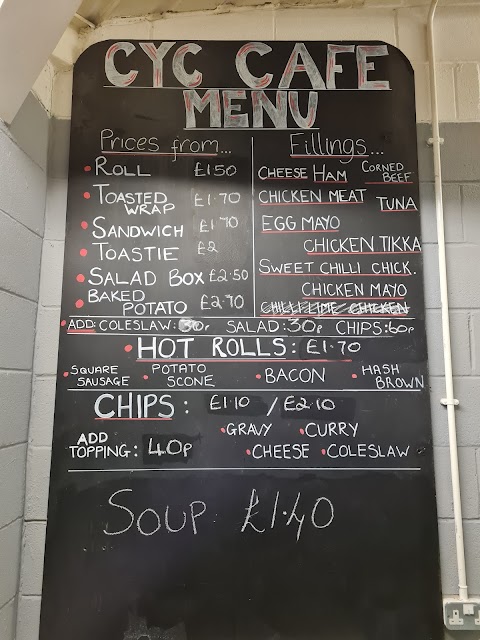 CYC CAFE
MENU
Prices from...
ROLL £1.50
TOASTED WRAP £1.70
SANDWICH £1.70
TOASTIE £2
SALAD BOX £2.50
BAKED POTATO £2.70
Fillings...
CHEESE HAM CORNED BEEF
CHICKEN MEAT TUNA
EGG MAYO
CHICKEN TIKKA
SWEET CHILLI CHICK.
CHICKEN MAYO
CHILLI LIME CHICKEN
ADD: COLESLAW: 30p SALAD: 30p CHIPS: 60p
HOT ROLLS: £1.70
SQUARE SAUSAGE POTATO SCONE BACON HASH BROWN
CHIPS: £1.10 / £2.10
ADD TOPPING: 40p
GRAVY CURRY
CHEESE COLESLAW
SOUP £1.40